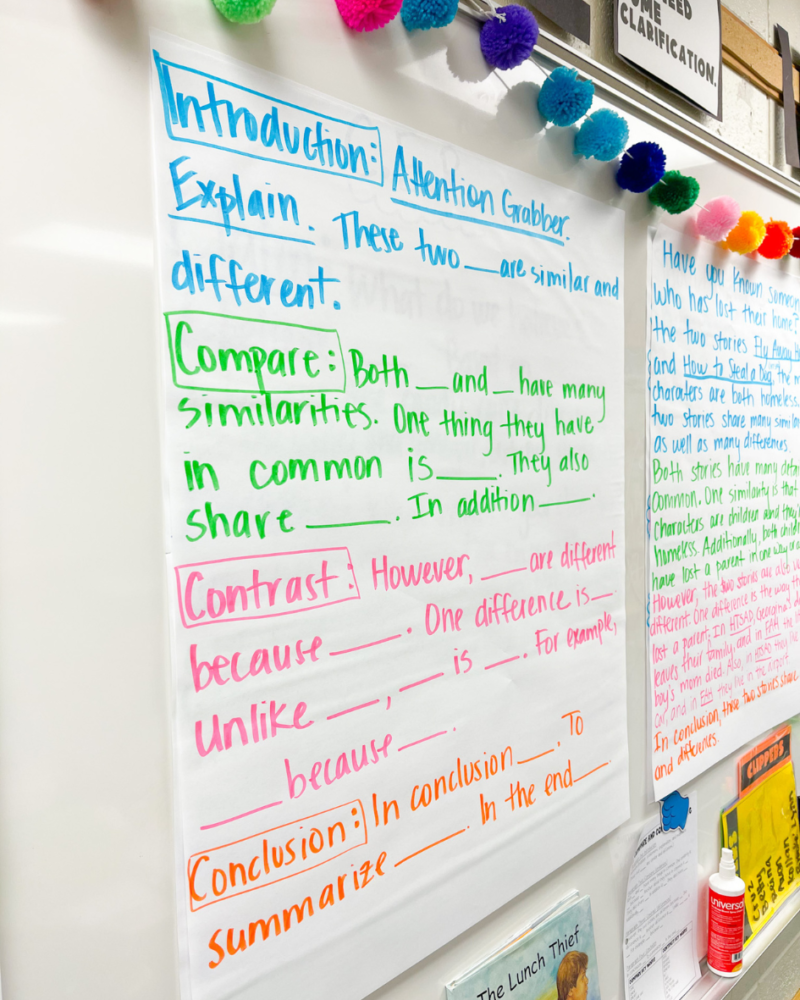 NEED
SOME
CLARIFICATION.
Introduction: Attention Grabber.
Explain. These two ___ are similar and
different.
Compare: Both ___ and ___ have many
similarities. One thing they have
in common is ___. They also
share ___. In addition ___.
Contrast: However, ___ are different
because ___. One difference is ___
Unlike ___, ___ is ___. For example,
___ because ___.
Conclusion: In conclusion ___. To
summarize ___. In the end ___.
Have you known
who has lost their home?
the two stories Fly Away
and How to Steal a Dog, the
characters are both homeless.
two stories share many
as well as many differences.
Both stories have many
common. One similarity is that
characters are children and
homeless. Additionally, both
have lost a parent in one way or
However, the two stories are
different. One difference is the way
lost a parent. In HTSAD, Georgina's
leaves their family, and in FAH the
boy's mom died. Also, in HTSAD they
car, and in FAH they live in the airport.
In conclusion, these two stories share
and differences.
CLIPPERS
The Lunch Thief
universal